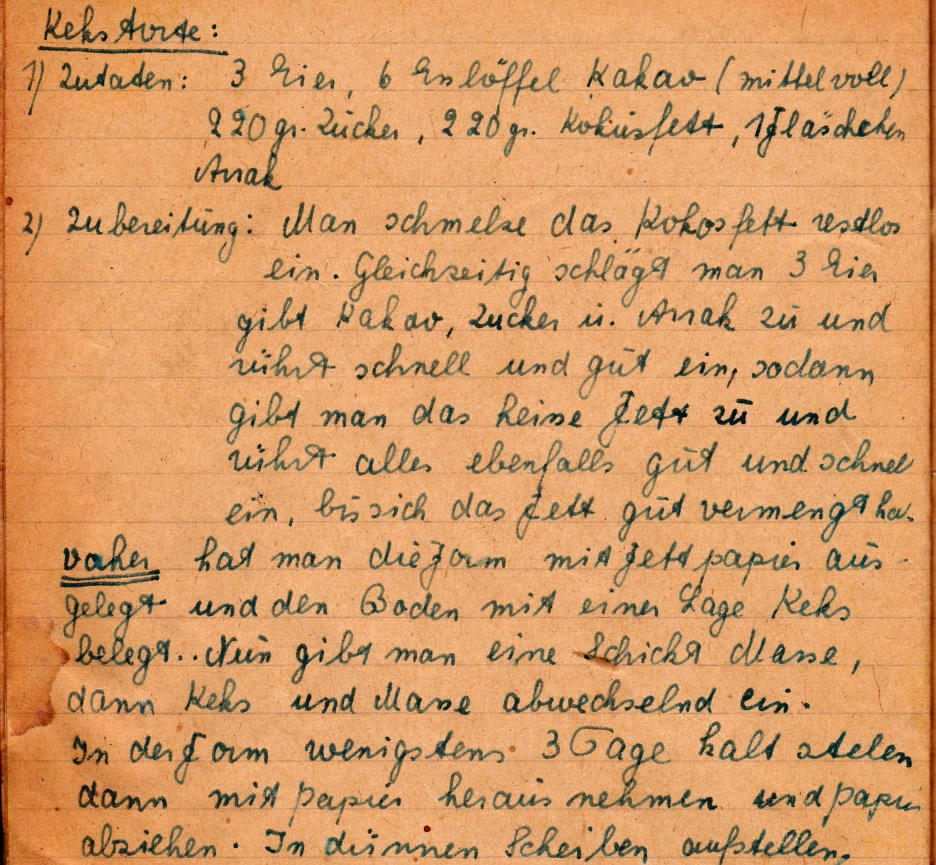 Keks Torte:
1) Zutaten: 3 Eier, 6 Esslöffel Kakao (mittelvoll)
220gr. Zucker, 220gr. Kokusfett, 1 Fläschchen
Arrak
2) Zubereitung: Man schmelze das Kokosfett restlos
ein. Gleichzeitig schlägt man 3 Eier
gibt Kakao, Zucker u. Arrak zu und
rührt schnell und gut ein, sodann
gibt man das heisse Fett zu und
rührt alles ebenfalls gut und schnell
ein, bis sich das Fett gut vermengt hat.
vorher hat man die Form mit Fettpapier aus-
gelegt und den Boden mit einer Lage Keks
belegt.. Nun gibt man eine Schicht Masse,
dann Keks und Masse abwechselnd ein.
In der Form wenigstens 3 Tage kalt stelen
dann mit papier heraus nehmen und papier
abziehen. In dünnen Scheiben aufstellen.